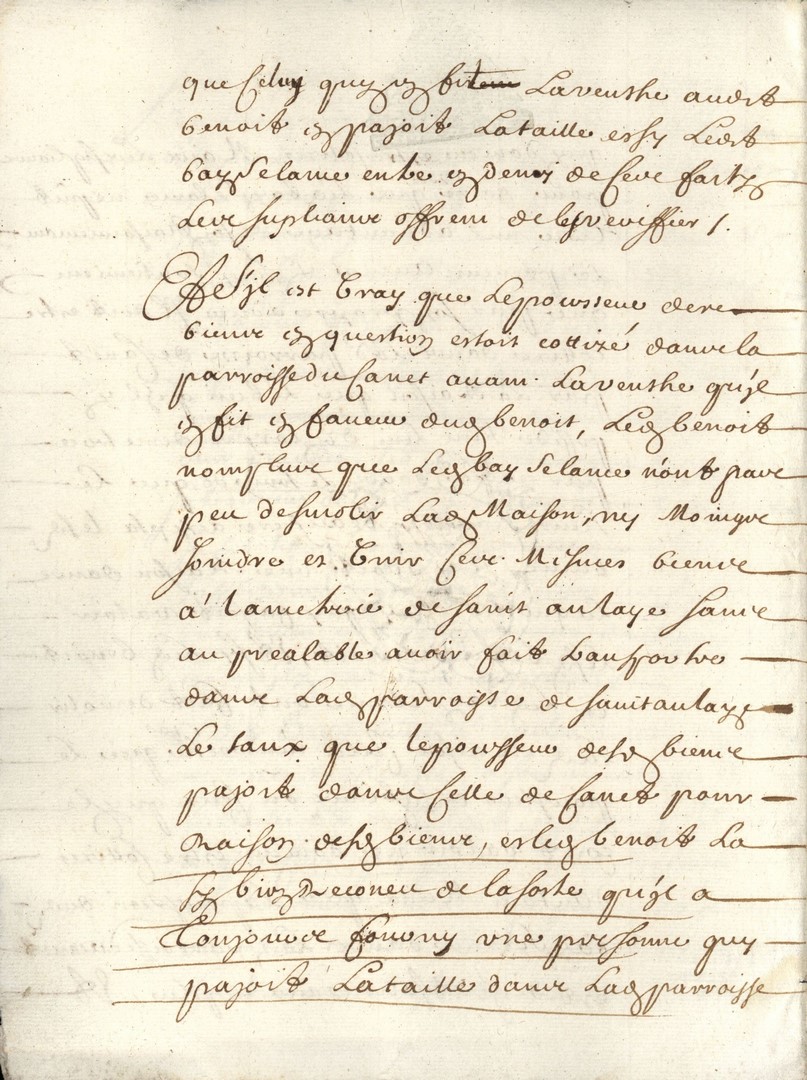 que Celuy quy en fit la venthe audit
benoit en payoit La taille et sy Ledit
bay Selame entre en deny de Ceve faits
Leur supliant offrent de les vériffier /.
Et s'jl est vray que Le possesseur desd
biens en question estoit cottizé dans la
parroisse du Canet avant La venthe qu'jl
en fit en faveur dud benoit, Led benoit
non plus que Led bay Selame n'ont pas
peu desmolir Lad Maison, ny Moingz
joindre et Vnir Ces Mesmes biens
á la metroié de saint aulaye sans
au prealable avoir fait transporter
dans Lad parroisse de saint aulaye
Le taux que le possesseur desd biens
payoit dans Celle de Canet pour
raison desd biens, et led benoit La
sy bien Reconeu de la sorte qu'jl a
Toujours fourny une personne quy
payoit La taille dans Lad parroisse